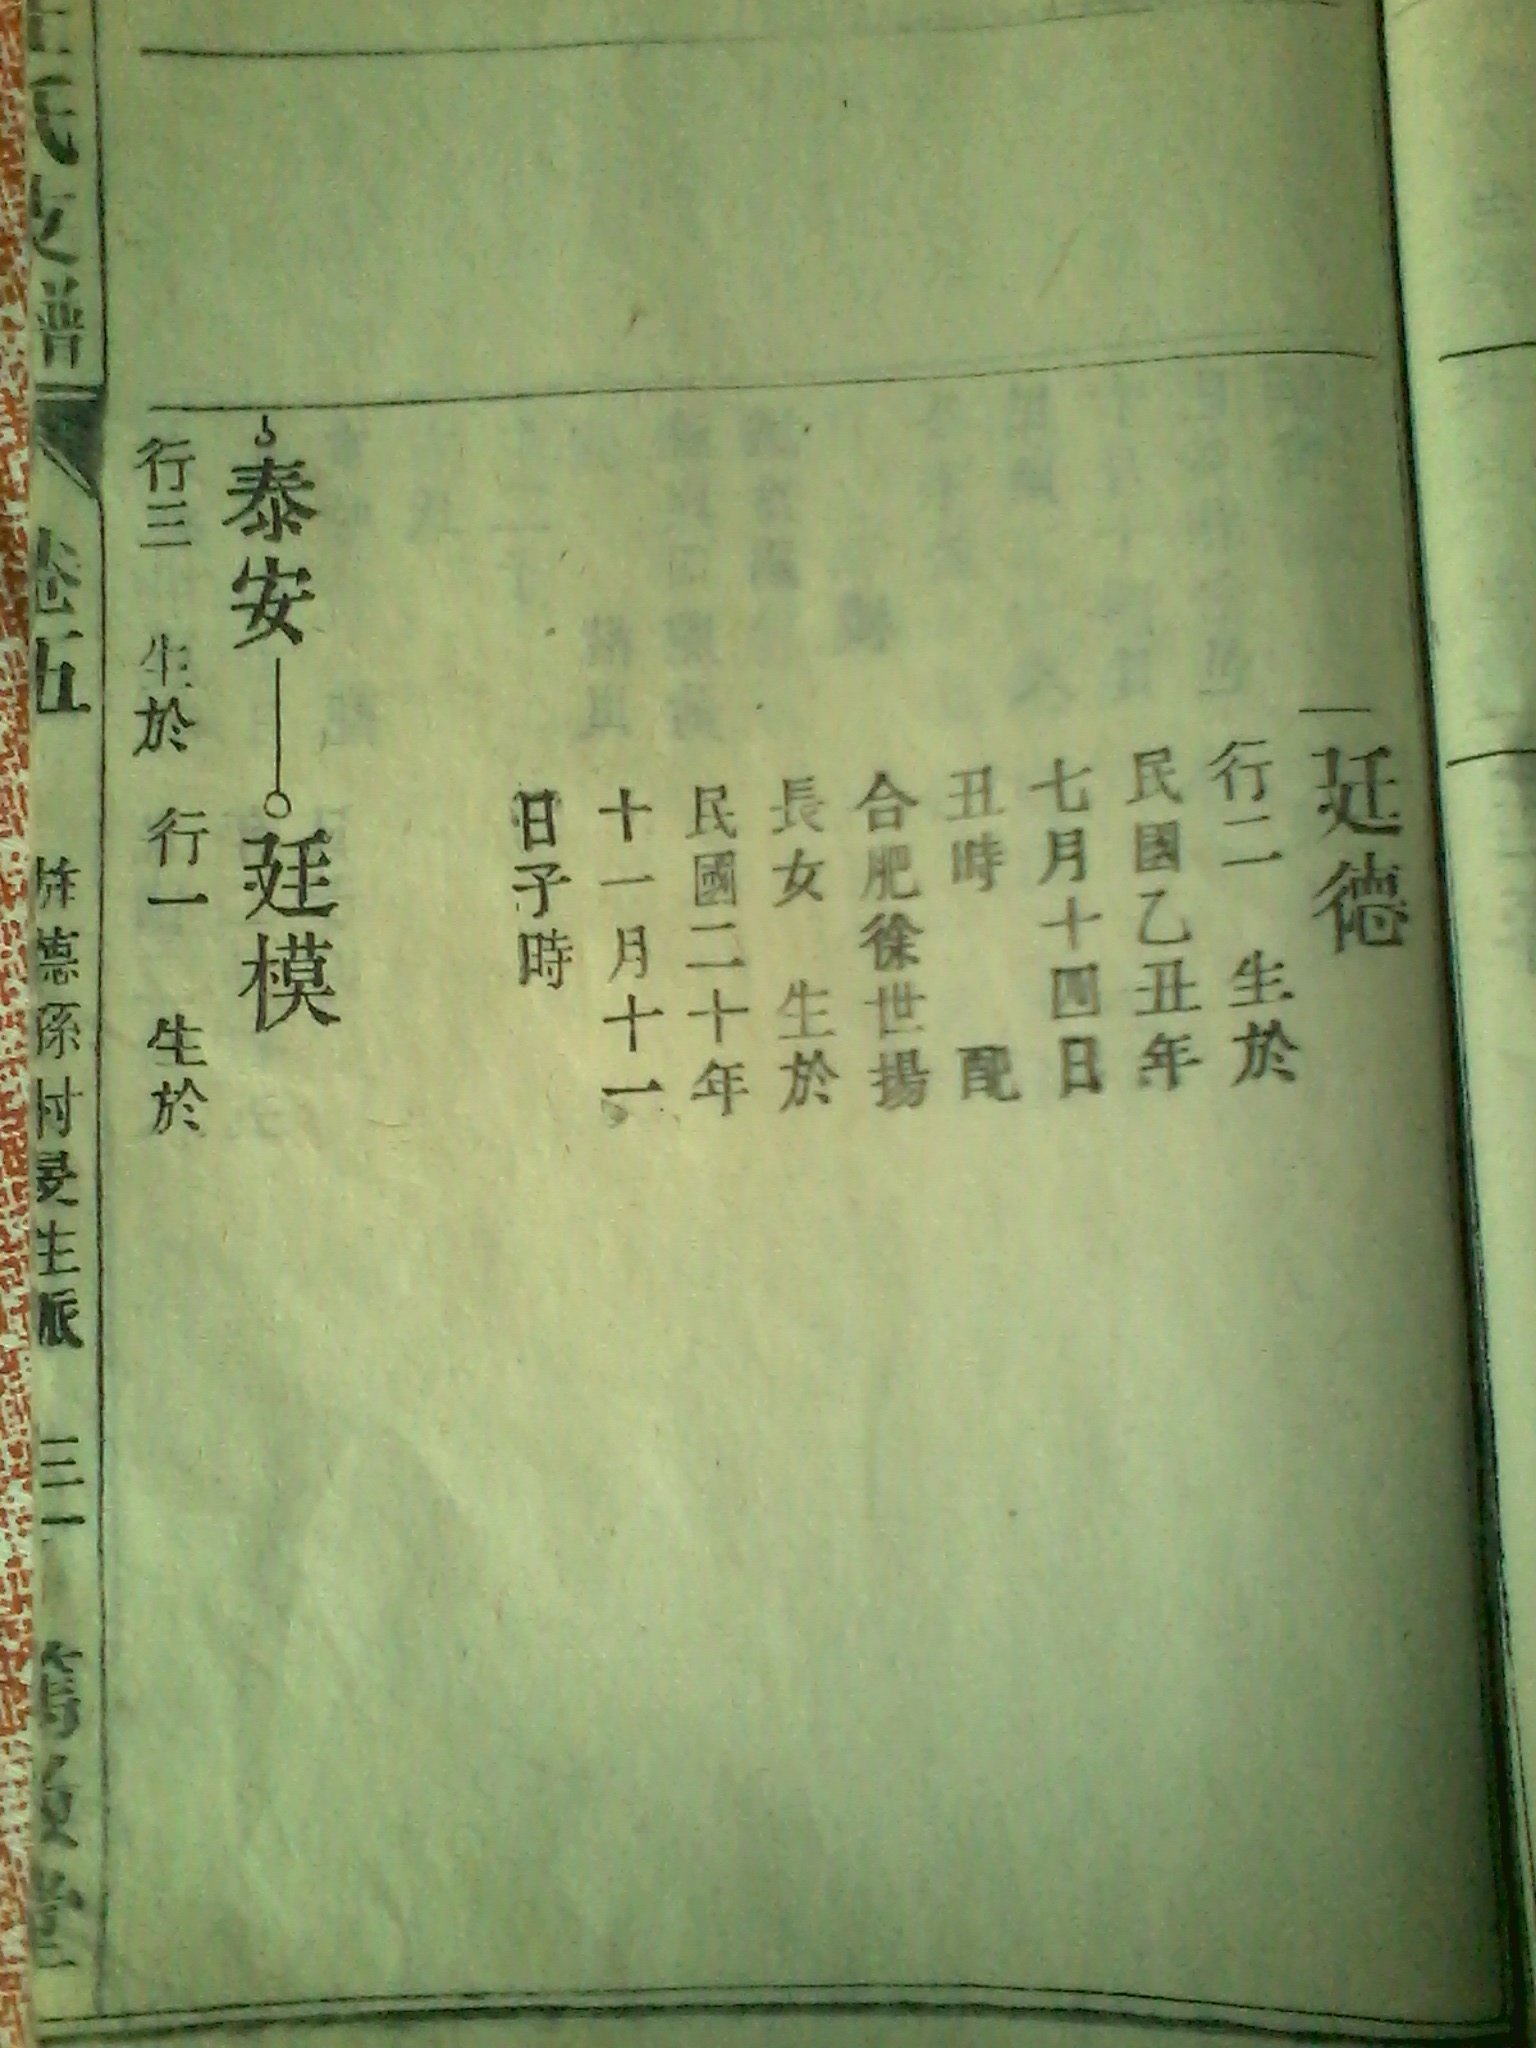 廷德
行二 生於
民國乙丑年
七月十四日
丑時 配
合肥徐世揚
長女 生於
民國二十年
十一月十一
日子時
泰安
廷模
行三 生於
行一 生於
氏支譜
卷五
德孫村晏生派
三一
敦堂